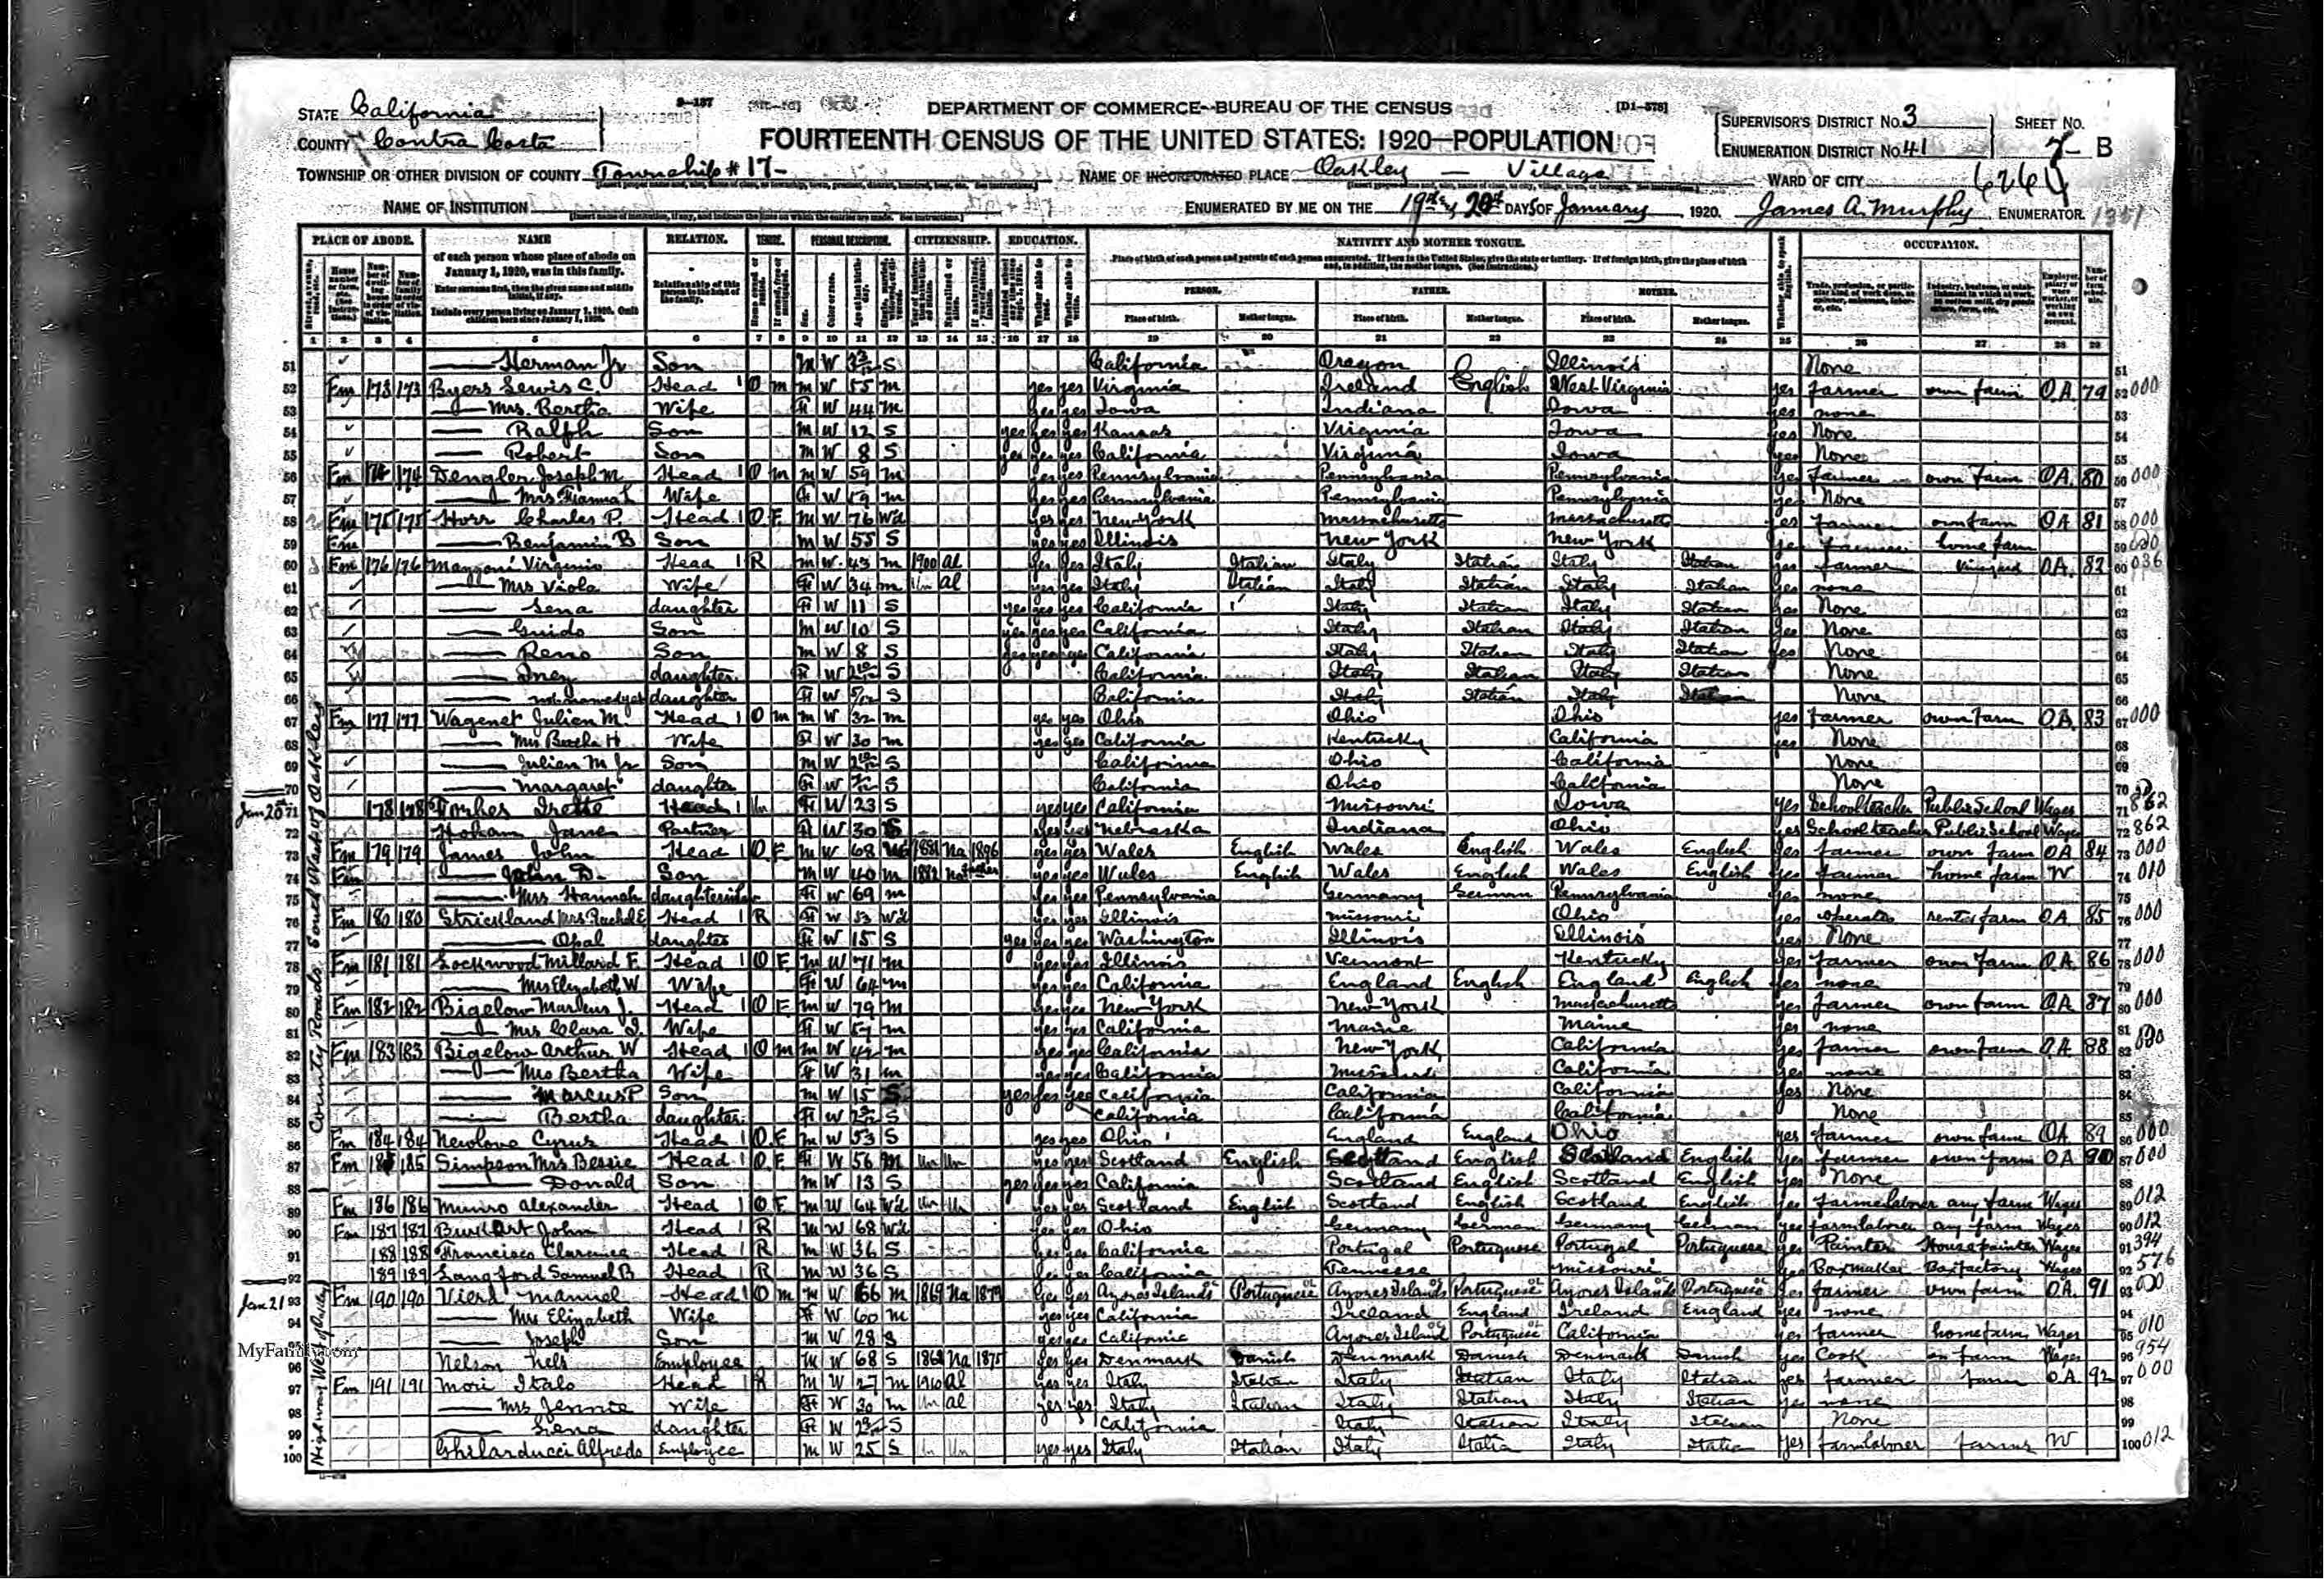 STATE California
COUNTY Contra Costa
9-137
DEPARTMENT OF COMMERCE--BUREAU OF THE CENSUS
[D1-578]
FOURTEENTH CENSUS OF THE UNITED STATES: 1920—POPULATION
SUPERVISOR'S DISTRICT No. 3
ENUMERATION DISTRICT No. 41
SHEET No.
7 B
TOWNSHIP OR OTHER DIVISION OF COUNTY Township # 17
NAME OF INCORPORATED PLACE Oakley — Village
WARD OF CITY
NAME OF INSTITUTION
ENUMERATED BY ME ON THE 19th & 20th DAYS OF January, 1920. James A. Murphy, ENUMERATOR.
PLACE OF ABODE. NAME RELATION. TENURE. PERSONAL DESCRIPTION. CITIZENSHIP. EDUCATION. NATIVITY AND MOTHER TONGUE. OCCUPATION.
of each person whose place of abode on January 1, 1920, was in this family.
Enter surname first, then the given name and middle initial, if any.
Include every person living on January 1, 1920. Omit children born since January 1, 1920.
Relationship of this person to the head of the family.
PERSON. FATHER. MOTHER.
Place of birth. Mother tongue. Place of birth. Mother tongue. Place of birth. Mother tongue.
51 — Herman Jr Son M W S California Oregon Illinois None 51
52 Fm 173 173 Byers Lewis C. Head 1 O M M W 55 M yes yes Virginia Ireland English West Virginia yes farmer own farm O.A. 79 52 000
53 — Mrs. Bertha Wife F W 44 M yes yes Iowa Indiana Iowa yes none 53
54 — Ralph Son M W 12 S yes yes yes Kansas Virginia Iowa yes None 54
55 — Robert Son M W 8 S yes yes yes California Virginia Iowa yes None 55
56 Fm 174 174 Dengler Joseph M. Head 1 O M M W 59 M yes yes Pennsylvania Pennsylvania Pennsylvania yes farmer own farm O.A. 80 56 000
57 — Mrs Hannah Wife F W 59 M yes yes Pennsylvania Pennsylvania Pennsylvania yes None 57
58 Fm 175 175 Horr Charles P. Head 1 O F M W 76 Wd yes yes New York Massachusetts Massachusetts yes farmer own farm O.A. 81 58 000
59 Fm — Benjamin B Son M W 55 S yes yes Illinois New York New York yes farmer home farm 59
60 Fm 176 176 Virginio Head 1 R M W 43 M 1900 Al yes yes Italy Italian Italy Italian Italy Italian yes farmer vineyard O.A. 82 60 036
61 — Mrs Viola Wife F W 34 M Un Al yes yes Italy Italian Italy Italian Italy Italian yes none 61
62 — Lena daughter F W 11 S yes yes yes California Italy Italian Italy Italian yes None 62
63 — Guido Son M W 10 S yes yes yes California Italy Italian Italy Italian yes None 63
64 — Reno Son M W 8 S yes yes yes California Italy Italian Italy Italian yes None 64
65 — Inez daughter F W S California Italy Italian Italy Italian None 65
66 — not named yet daughter F W 5/12 S California Italy Italian Italy Italian None 66
67 Fm 177 177 Wagenet Julien M Head 1 O M M W 32 M yes yes Ohio Ohio Ohio yes farmer own farm O.A. 83 67 000
68 — Mrs Bertha H Wife F W 30 M yes yes California Kentucky California yes None 68
69 — Julien M Jr Son M W S California Ohio California None 69
70 — Margaret daughter F W S California Ohio California None 70
Jan 20 71 178 178 Irette Head 1 Un F W 23 S yes yes California Missouri Iowa yes School teacher Public School Wages 71 862
72 Jane Partner F W 30 S yes yes Nebraska Indiana Ohio yes School teacher Public School Wages 72 862
73 Fm 179 179 James John Head 1 O F M W 68 Na 1896 yes yes Wales English Wales English Wales English yes farmer own farm O.A 84 73 000
74 Fm — John D. Son M W 40 M 1882 Na father yes yes Wales English Wales English Wales English yes farmer home farm W 74 010
75 — Mrs Hannah daughterinlaw F W 69 M yes yes Pennsylvania Germany German Pennsylvania yes none 75
76 Fm 180 180 Strickland Mrs Rachel E Head 1 R F W 53 Wd yes yes Illinois Missouri Ohio yes operates rented farm O.A. 85 76 000
77 — Opal daughter F W 15 S yes yes yes Washington Illinois Illinois yes None 77
78 Fm 181 181 Lockwood Millard F. Head 1 O F M W 71 M yes yes Illinois Vermont Kentucky yes farmer own farm O.A. 86 78 000
79 — Mrs Elizabeth W Wife F W 64 M yes yes California England English England English yes none 79
80 Fm 182 182 Bigelow Marcus J. Head 1 O F M W 79 M yes yes New York New York Massachusetts yes farmer own farm O.A 87 80 000
81 — Mrs Clara I. Wife F W 59 M yes yes California Maine Maine yes none 81
82 Fm 183 183 Bigelow Arthur W Head 1 O M M W 42 M yes yes California New York California yes farmer own farm O.A 88 82 000
83 — Mrs Bertha Wife F W 31 M yes yes California Missouri California yes none 83
84 — Marcus P Son M W 15 S yes yes yes California California California yes None 84
85 — Bertha daughter F W S California California California None 85
86 Fm 184 184 Newlove Cyrus Head 1 O F M W 53 S yes yes Ohio England England Ohio yes farmer own farm O.A 89 86 000
87 Fm 185 185 Simpson Mrs Bessie Head 1 O F F W 56 M Un Un yes yes Scotland English Scotland English Scotland English yes farmer own farm O.A 90 87 000
88 — Donald Son M W 13 S yes yes yes California Scotland English Scotland English yes None 88
89 Fm 186 186 Munro Alexander Head 1 O F M W 64 Wd Un Un yes yes Scotland English Scotland English Scotland English yes farm laborer any farm Wages 89 012
90 Fm 187 187 Burkart John Head 1 R M W 68 Wd yes yes Ohio Germany German Germany German yes farm laborer any farm Wages 90 012
91 188 188 Francisco Clarence Head 1 R M W 36 S yes yes California Portugal Portuguese Portugal Portuguese yes Painter House painter Wages 91 394
92 189 189 Langford Samuel B Head 1 R M W 36 S yes yes California Tennessee Missouri yes Boxmaker Box factory Wages 92 576
Jan 21 93 Fm 190 190 Viera Manuel Head 1 O M M W 66 M 1869 Na 1879 yes yes Azores Islands Portuguese Azores Islands Portuguese Azores Islands Portuguese yes farmer own farm O.A. 91 93 000
94 — Mrs Elizabeth Wife F W 60 M yes yes California Ireland England Ireland England yes none 94
95 — Joseph Son M W 28 S yes yes California Azores Island Portuguese California yes farmer home farm Wages 95 010
MyFamily.com
96 Nelson Nels Employee M W 68 S 1869 Na 1875 yes yes Denmark Danish Denmark Danish Denmark Danish yes Cook on farm Wages 96 954
97 Fm 191 191 Mori Italo Head 1 R M W 27 M 1910 Al yes yes Italy Italian Italy Italian Italy Italian yes farmer farm O.A. 92 97 000
98 — Mrs Jennie Wife F W 30 M Un Al yes yes Italy Italian Italy Italian Italy Italian yes none 98
99 — Lena daughter F W S California Italy Italian Italy Italian None 99
100 Ghilarducci Alfredo Employee M W 25 S Un Un yes yes Italy Italian Italy Italia Italy Italia yes farmlaborer farms W 100 012
County Roads South West of Oakley
Highway West of Oakley